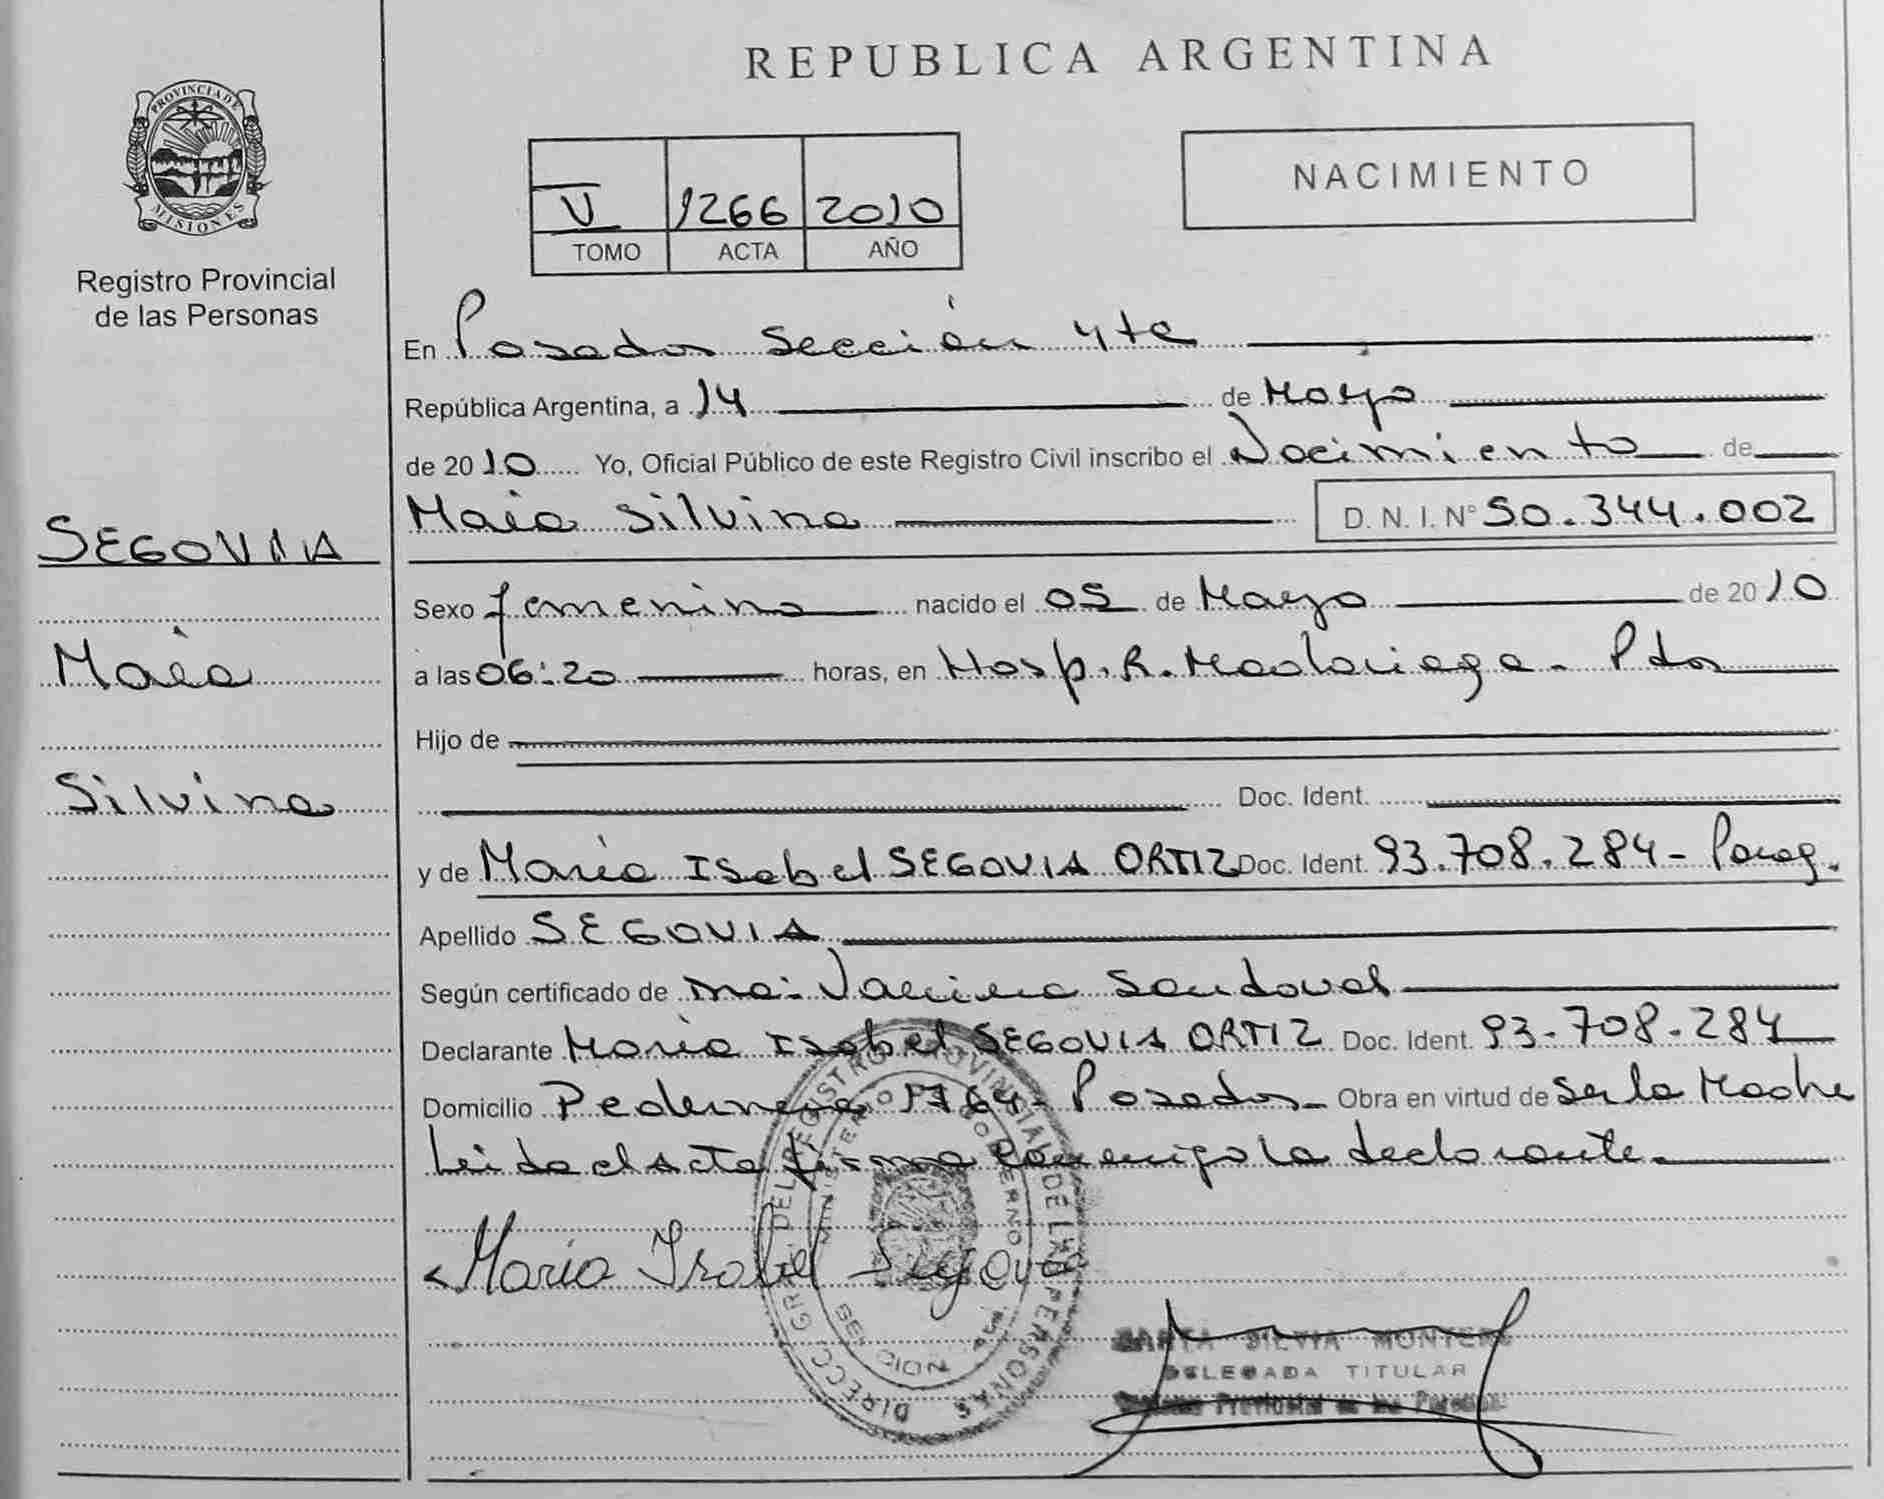 REPUBLICA ARGENTINA
PROVINCIA DE MISIONES
Registro Provincial
de las Personas
V 1266 2010
TOMO ACTA AÑO
NACIMIENTO
SEGOVIA
Maia
Silvina
En Posadas Sección 4ta
República Argentina, a 14 de Mayo
de 2010 Yo, Oficial Público de este Registro Civil inscribo el Nacimiento de
Maia Silvina D. N. I. Nº 50.344.002
Sexo femenino nacido el 05 de Mayo de 2010
a las 06:20 horas, en Hosp. R. Madariaga - Pdas
Hijo de
Doc. Ident.
y de María Isabel SEGOVIA ORTIZ Doc. Ident. 93.708.284 - Parag.
Apellido SEGOVIA
Según certificado de Sandoval
Declarante María Isabel SEGOVIA ORTIZ Doc. Ident. 93.708.284
Domicilio Pedernera 1764 Posadas Obra en virtud de ser la Madre
Leída el Acta firma conmigo la declarante.
María Isabel Segovia
DIRECC. GRAL. DEL REGISTRO PROVINCIAL DE LAS PERSONAS
MINISTERIO GOBIERNO
SILVIA
DELEGADA TITULAR
Provincial de las Personas